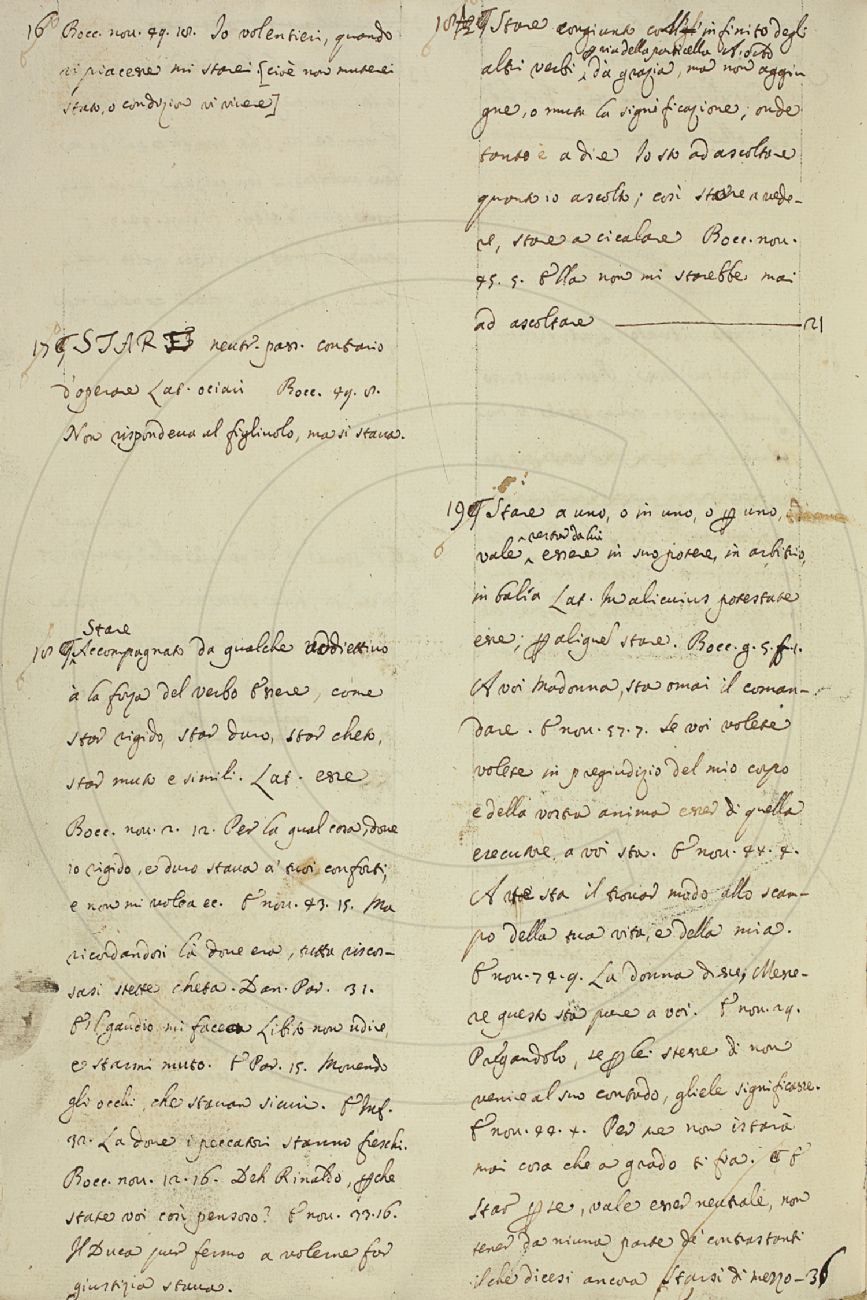 16 Bocc. nov. 49. 18. Io volentieri, quando
vi piacesse mi starei [cioè non muterei
stato, o condizion vi vivere]
17 ¶ STARE neutr. pass. contrario
d'operare Lat. ociari Bocc. 49. 8.
Non rispondeva al figliuolo, ma si stava.
Stare
18 ¶ Accompagnato da qualche addiettivo
à la forza del verbo Essere, come
star rigido, star duro, star cheto,
star muto e simili. Lat. esse
Bocc. nov. 2. 12. Per la qual cosa, dove
io rigido, e duro stava a' tuoi conforti,
e non mi volea ec. E nov. 43. 15. Ma
ricordandosi là dove era, tutta riscos-
sasi stette cheta. Dan. Par. 31.
E 'l gaudio mi facea Libito non udire,
e starmi muto. E Par. 15. Movendo
gli occhi, che stavan sicuri. E Inf.
32. La dove i peccatori stanno freschi.
Bocc. nov. 12. 16. Deh Rinaldo, perche
state voi così pensoso? E nov. 33. 16.
Il Duca pur fermo a volerne far
giustizia stava.
¶ Stare congiunto coll' infinito degli
altri verbi per via della particella
dà grazia, ma non aggiu
gne, o muta la significazione; onde
tanto è a dire Io sto ad ascoltare
quanto io ascolto; così stare a vede-
re, stare a cicalare Bocc. nov.
45. 5. Ella non mi starebbe mai
ad ascoltare 21
19 ¶ Stare a uno, o in uno, o per uno,
restar da lui
vale essere in suo potere, in arbitrio,
in balía Lat. In alicuius potestate
esse; per aliquem stare. Bocc. g. 5. f. 1.
A voi Madonna, sta omai il coman-
dare. E nov. 37. 7. Se voi volete
volete in pregiudizio del mio corpo
e della vostra anima esser di quella
esecutore, a voi sta. E nov. 44. 4.
A te sta il trovar modo allo scam-
po della tua vita, e della mia.
E nov. 74. 9. La donna disse, Messe-
re questo sta pure a voi. E nov. 29.
Pregandolo, se per lei stesse di non
venire al suo contado, gliele significasse.
E nov. 44. 4. Per me non istarà
mai cosa che a grado ti sia. E
Star per se, vale esser neutrale, non
tener da niuna parte de' contrastanti
il che dicesi ancora Starsi di mezzo - 36